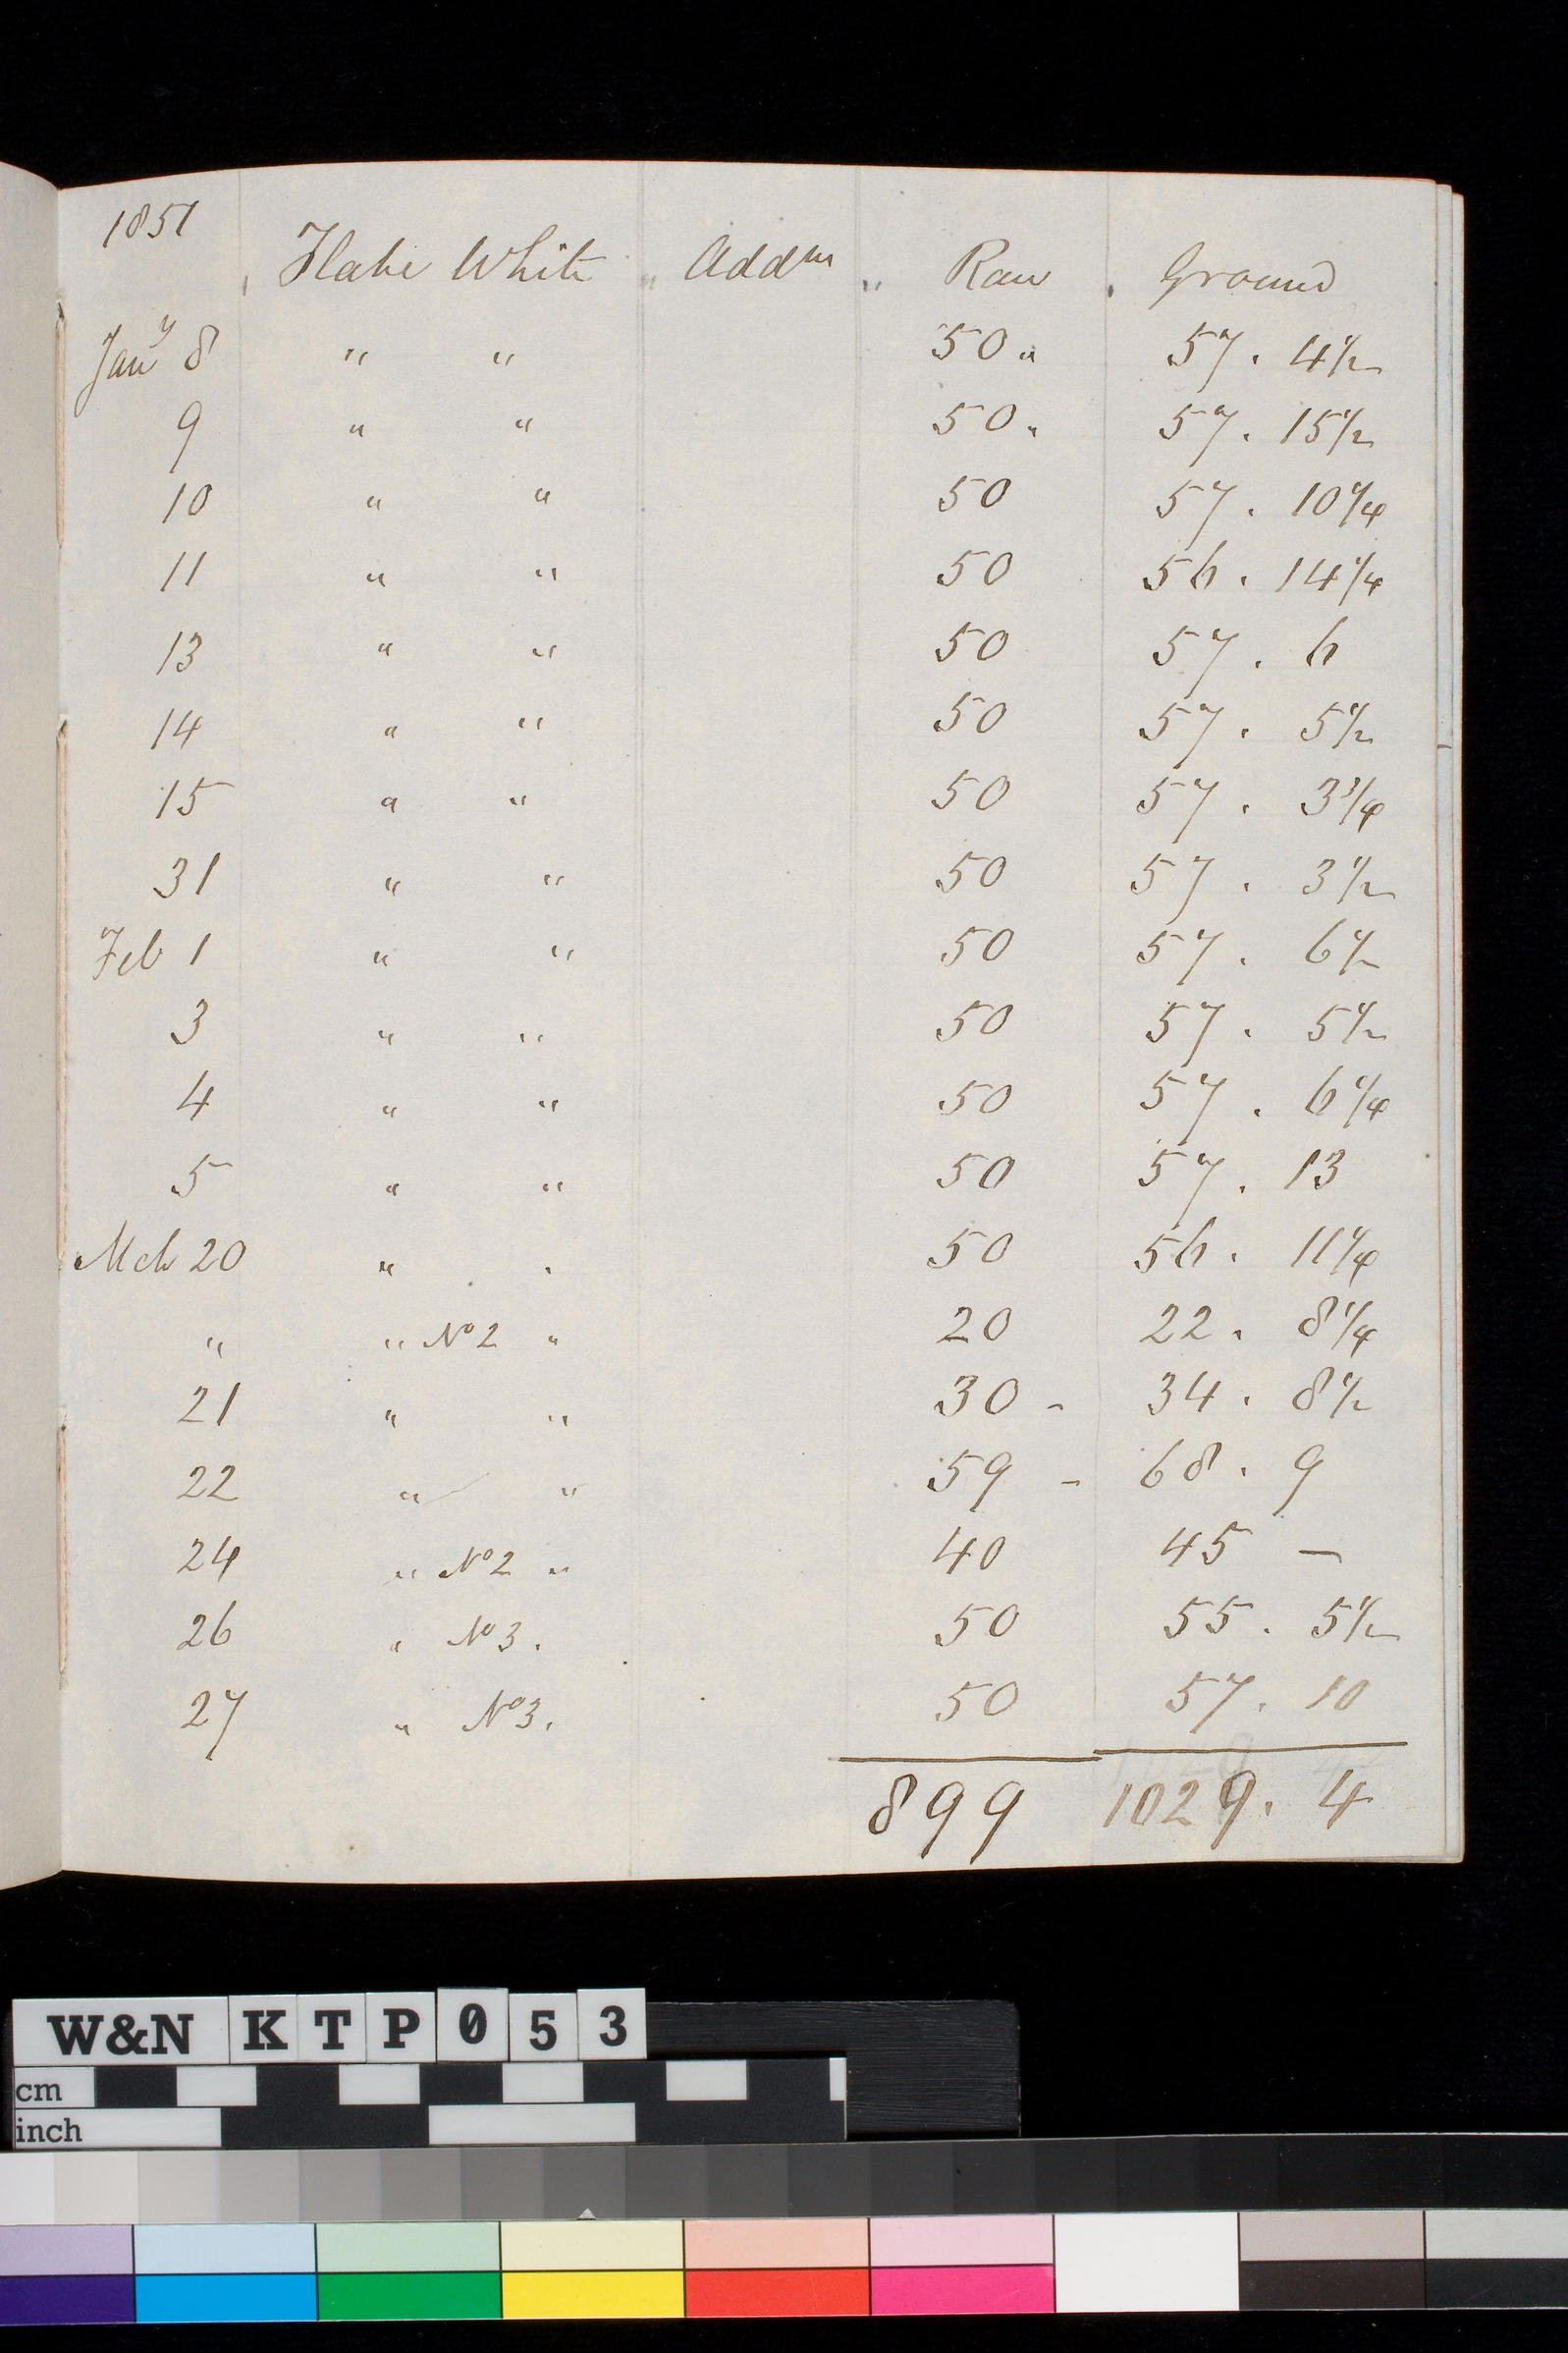 1851
Flake White " Addns " Raw " Ground
Jany 8 " " 50 " 57 . 4 1/2
9 " " 50 " 57 . 15 1/2
10 " " 50 57 . 10 1/4
11 " " 50 56 . 14 1/4
13 " " 50 57 . 6
14 " " 50 57 . 5 1/2
15 " " 50 57 . 3 3/4
31 " " 50 57 . 3 1/2
Feb 1 " " 50 57 . 6 1/2
3 " " 50 57 . 5 1/2
4 " " 50 57 . 6 1/4
5 " " 50 57 . 13
Mch 20 " " 50 56 . 11 1/4
" " No 2 " 20 22 . 8 1/4
21 " " 30 - 34 . 8 1/2
22 " " 59 - 68 . 9
24 " No 2 " 40 45 —
26 " No 3 . 50 55 . 5 1/2
27 " No 3 . 50 57 . 10
899 1029 . 4
W&N KTP053
cm
inch